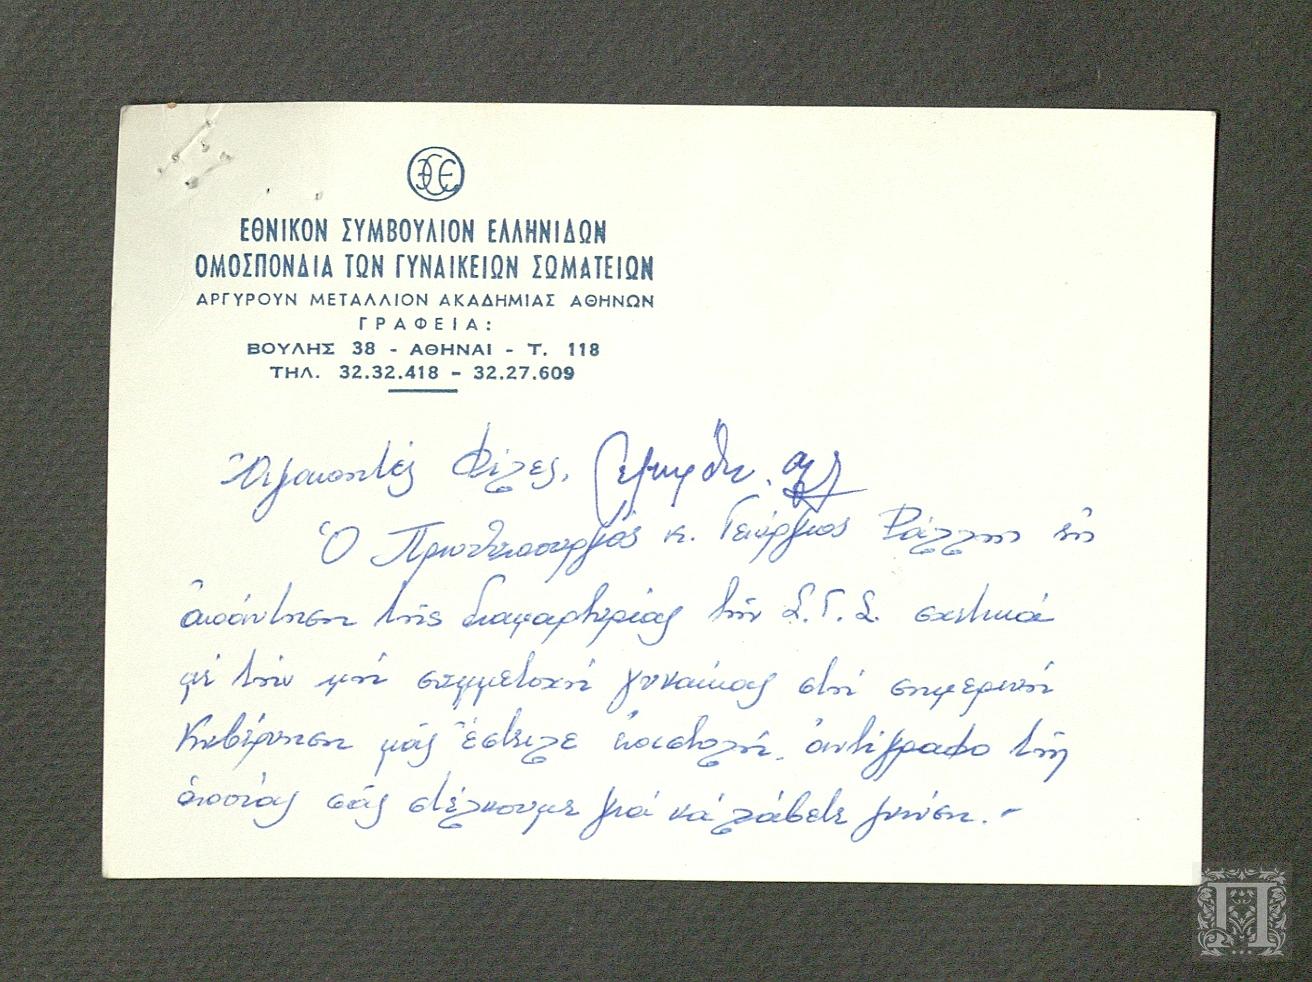 ΕΘΝΙΚΟΝ ΣΥΜΒΟΥΛΙΟΝ ΕΛΛΗΝΙΔΩΝ
ΟΜΟΣΠΟΝΔΙΑ ΤΩΝ ΓΥΝΑΙΚΕΙΩΝ ΣΩΜΑΤΕΙΩΝ
ΑΡΓΥΡΟΥΝ ΜΕΤΑΛΛΙΟΝ ΑΚΑΔΗΜΙΑΣ ΑΘΗΝΩΝ
ΓΡΑΦΕΙΑ:
ΒΟΥΛΗΣ 38 - ΑΘΗΝΑΙ - Τ. 118
ΤΗΛ. 32.32.418 - 32.27.609
Ἀγαπητές Φίλες,
Ὁ Πρωθυπουργός κ. Γεώργιος Ράλλης εἰς
ἀπάντηση τῆς διαμαρτυρίας τῆς Σ.Γ.Σ. σχετικά
μέ τήν μή συμμετοχή γυναίκας στή σημερινή
Κυβέρνηση μᾶς ἔστειλε ἐπιστολή, ἀντίγραφο τῆς
ὁποίας σᾶς στέλνουμε γιά νά λάβετε γνώση. -